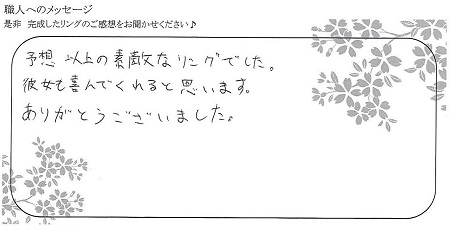 職人へのメッセージ
是非 完成したリングのご感想をお聞かせください♪
予想以上の素敵なリングでした。
彼女も喜んでくれると思います。
ありがとうございました。